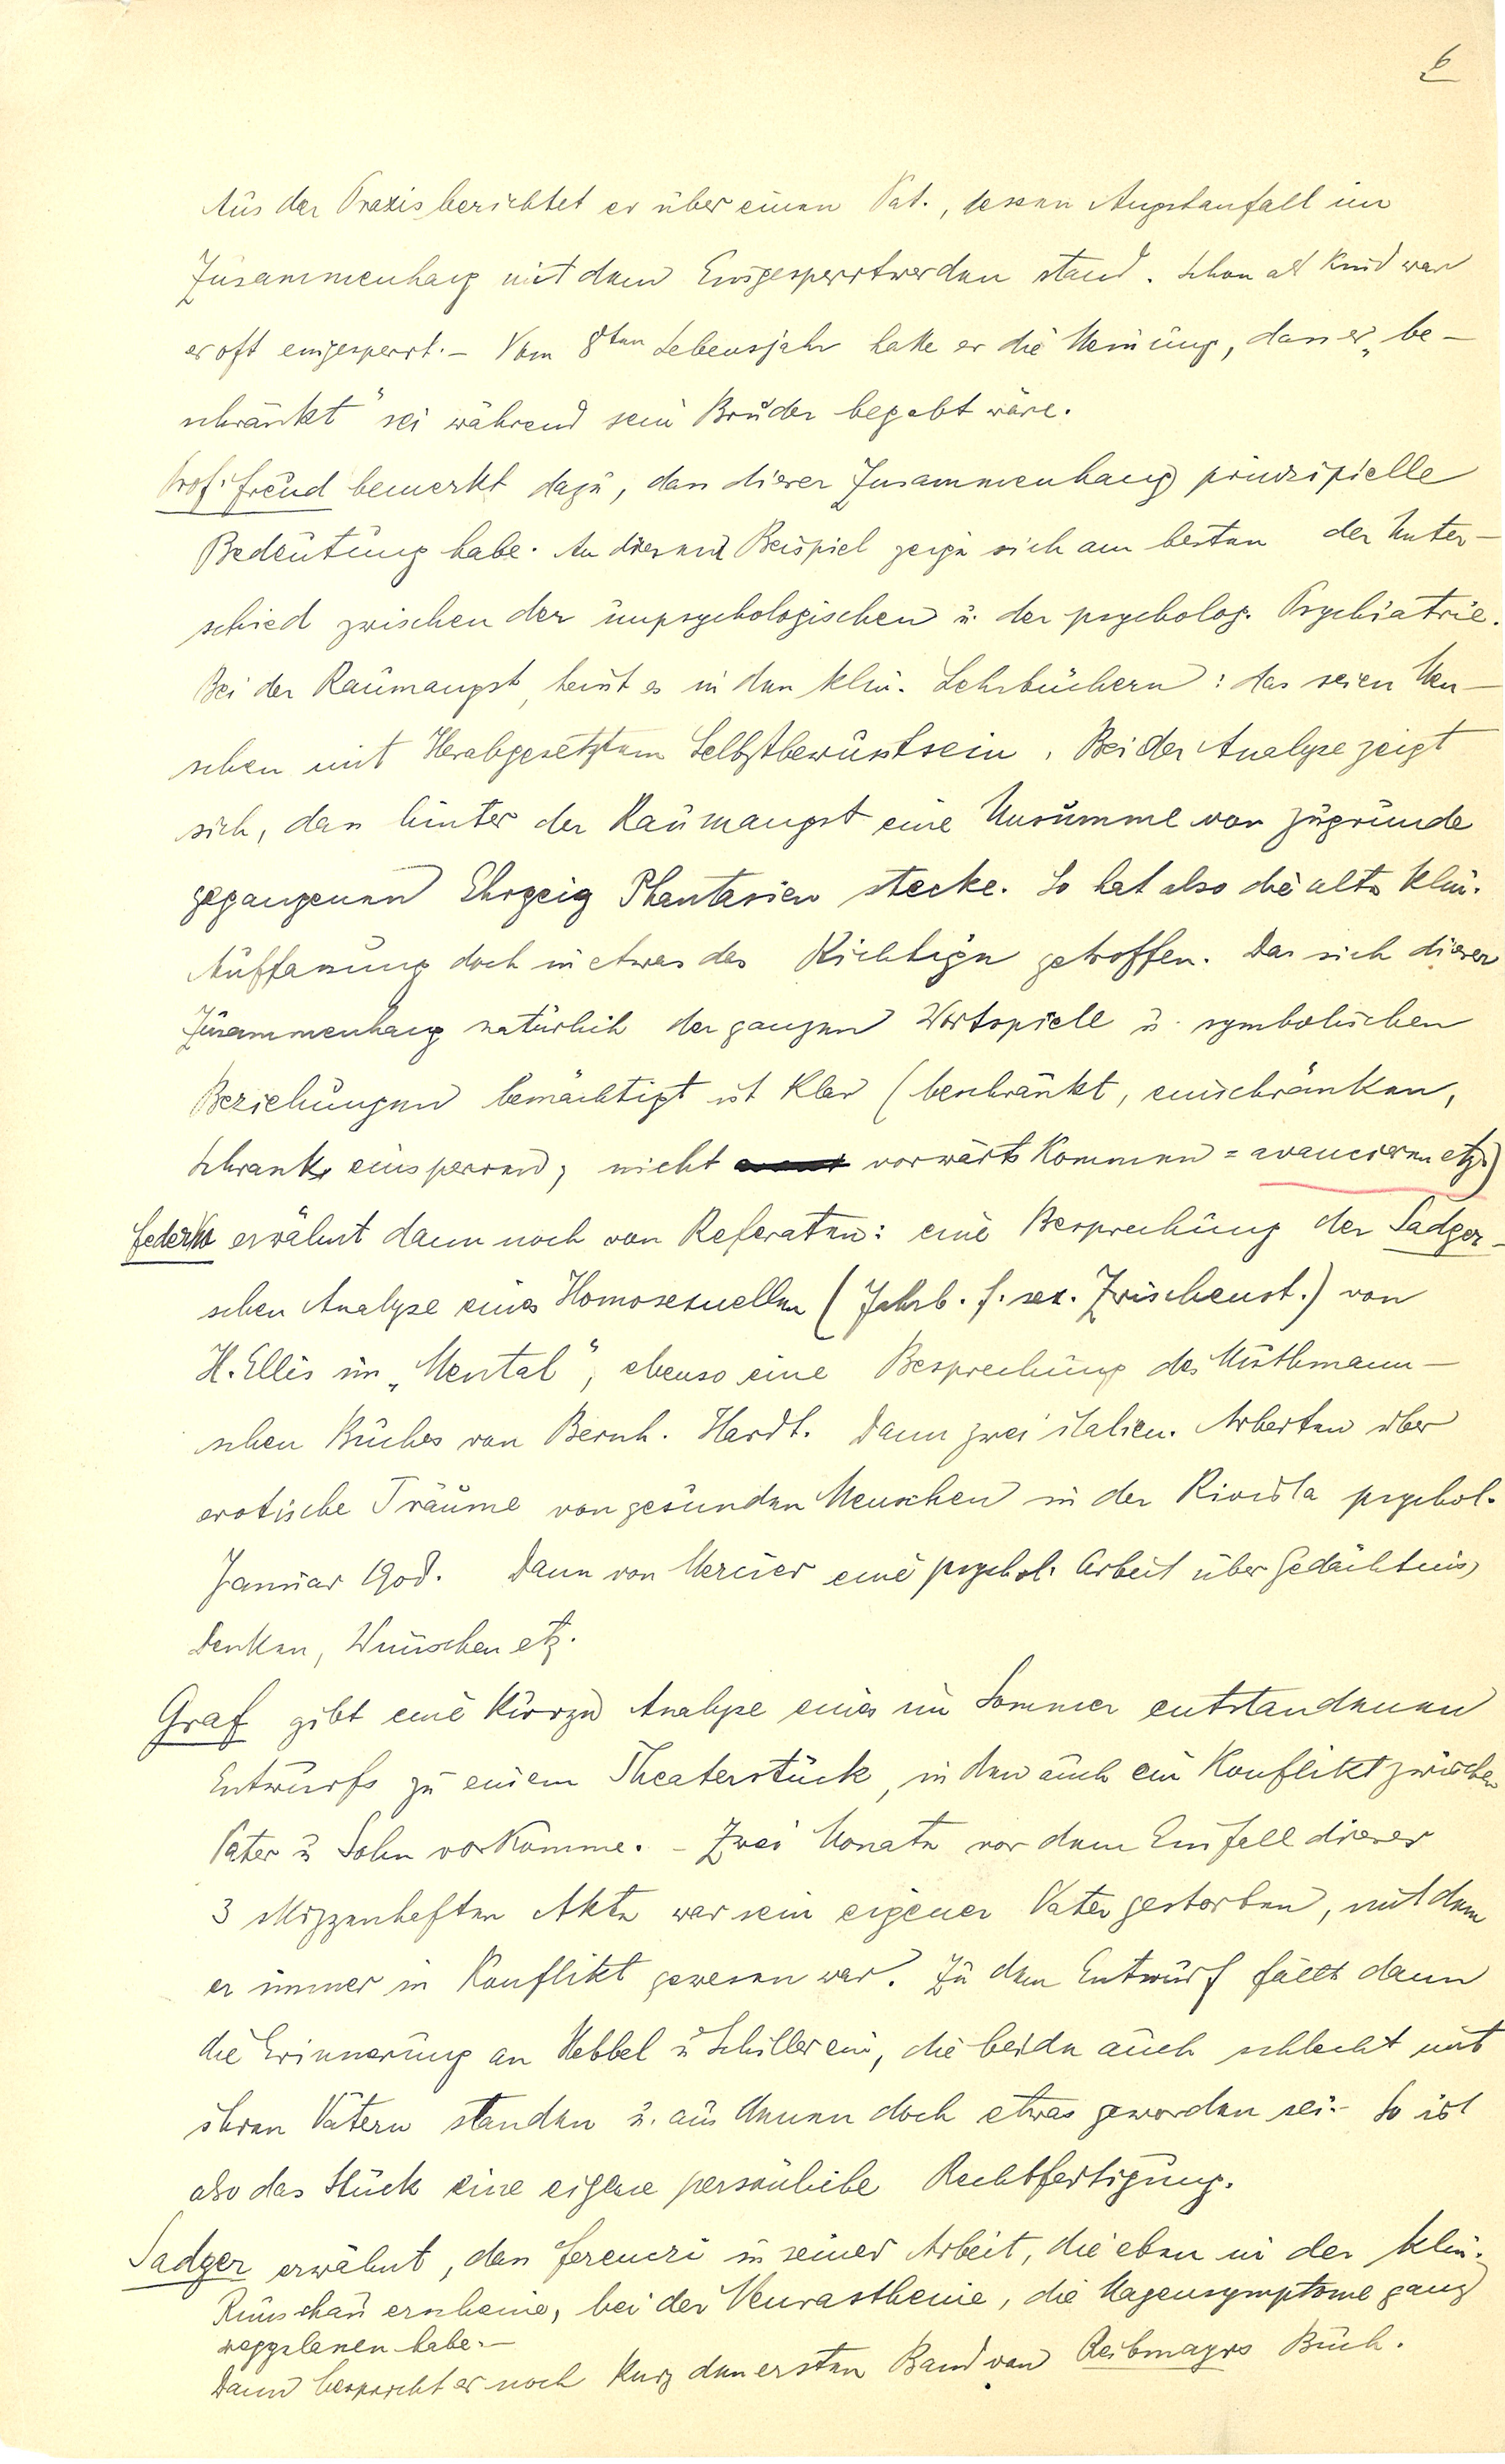 6
Aus der Praxis berichtet er über einen Pat., dessen Angstanfall im
Zusammenhang mit dem Eingesperrtwerden stand. Schon als Kind war
er oft eingesperrt. – Vom 8ten Lebensjahr hatte er die Meinung, dass er „be-
schränkt“ sei während sein Bruder begabt wäre.
Prof. Freud bemerkt dazu, dass dieser Zusammenhang prinzipielle
Bedeutung habe. An diesem Beispiel zeige sich am besten der Unter-
schied zwischen der unpsychologischen u. der psycholog. Psychiatrie.
Bei der Raumangst, heisst es in den klin. Lehrbüchern: das seien Men-
schen mit Herabgesetztem Selbstbewusstsein. Bei der Analyse zeigt
sich, dass hinter der Raumangst eine Unsumme von zugrunde
gegangenen Ehrgeiz Phantasien stecke. So hat also die alte klin.
Auffassung doch in etwas das Richtige getroffen. Das sich dieser
Zusammenhang natürlich der ganzen Wortspiele u. symbolischen
Beziehungen bemächtigt ist klar (beschränkt, einschränken,
Schrank, einsperren, nicht vorwärts kommen = avancieren etz.)
Federn erwähnt dann noch von Referaten: eine Besprechung der Sadger-
schen Analyse eines Homosexuellen (Jahrb. f. sex. Zwischenst.) von
H. Ellis im „Mental“, ebenso eine Besprechung des Muthmann-
schen Buches von Bernh. Hardt. Dann zwei italien. Arbeiten über
erotische Träume von gesunden Menschen in der Rivista psychol.
Januar 1908. Dann von Mercier eine psychol. Arbeit über Gedächtnis,
Denken, Wünschen etz.
Graf gibt eine kurze Analyse eines im Sommer entstandenen
Entwurfs zu einem Theaterstück, in dem auch ein Konflikt zwischen
Vater u Sohn vorkomme. – Zwei Monate vor dem Einfall dieser
3 skizzenhaften Akte war sein eigener Vater gestorben, mit dem
er immer in Konflikt gewesen war. Zu dem Entwurf fällt dann
die Erinnerung an Hebbel u Schiller ein, die beide auch schlecht mit
ihren Vätern standen u. aus denen doch etwas geworden sei. – So ist
also das Stück eine eigene persönliche Rechtfertigung.
Sadger erwähnt, dass Ferenczi in seiner Arbeit, die eben in der klin.
Rundschau erscheine, bei der Neurasthenie, die Magensymptome ganz
weggelassen habe. –
Dann bespricht er noch kurz den ersten Band von Reibmayrs Buch.